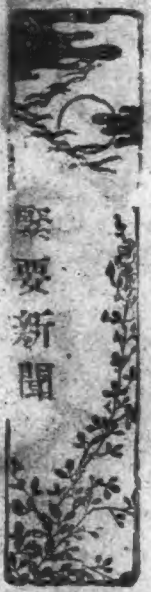 緊要新聞